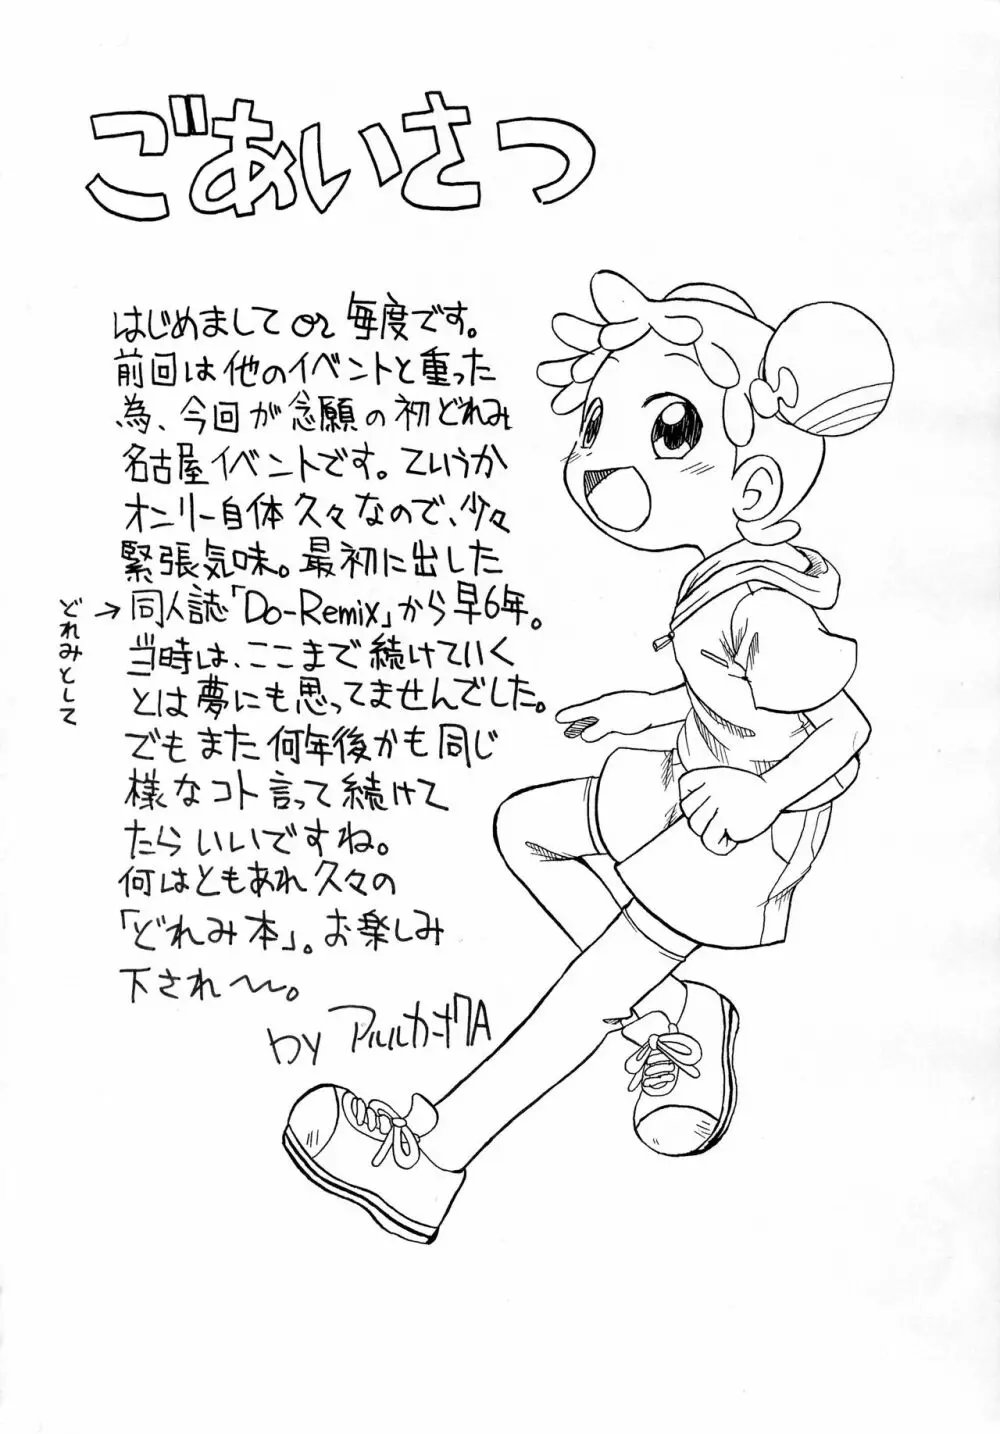 ごあいさつ
はじめまして or 毎度です。
前回は他のイベントと重った
為、今回が念願の初どれみ
名古屋イベントです。ていうか
オンリー自体久々なので、少々
緊張気味。最初に出した
どれみとして
→同人誌「Do-Remix」から早6年。
当時は、ここまで続けていく
とは夢にも思ってませんでした。
でもまた何年後かも同じ
様なコト言って続けて
たらいいですね。
何はともあれ久々の
「どれみ本」。お楽しみ
下され〜〜。
by アルルカーナ7A